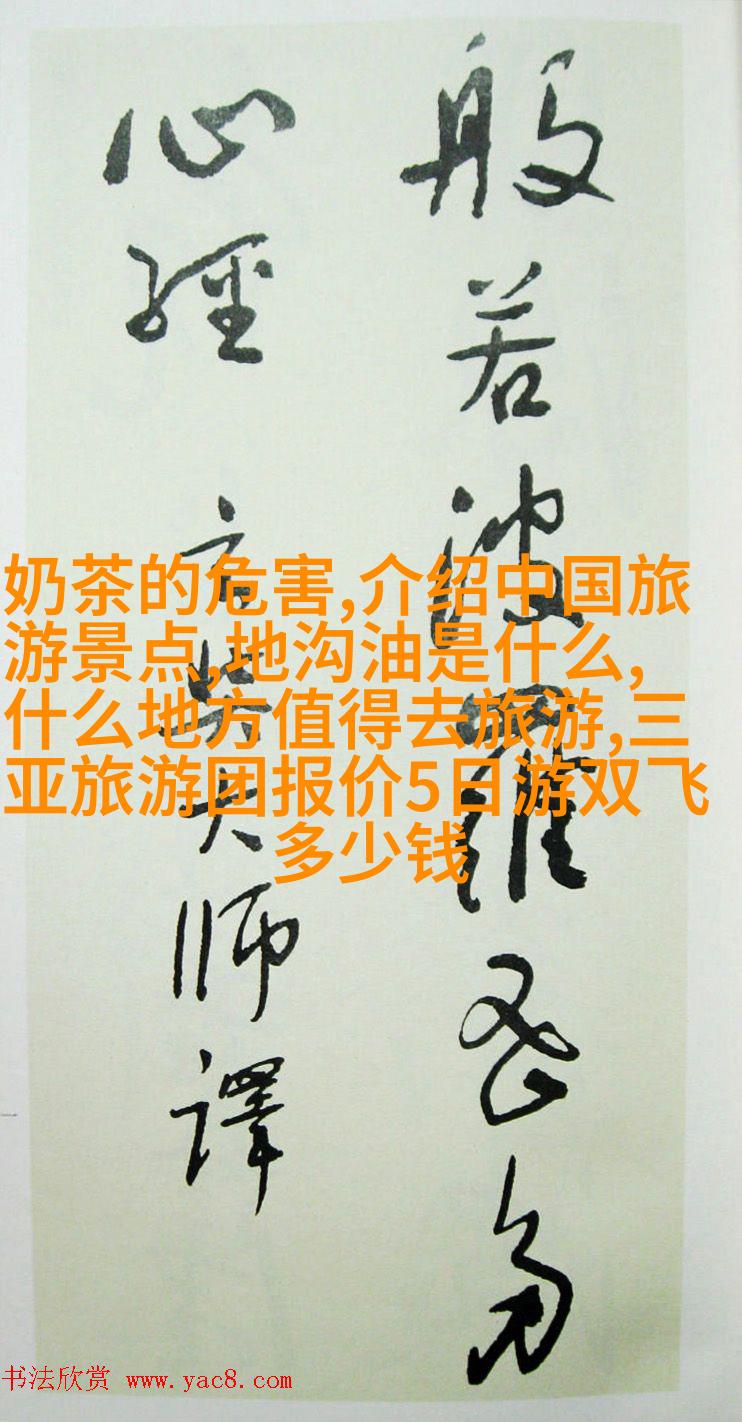 般若波羅蜜多
心經 玄奘大師譯
奶茶的危害,介绍中国旅
游景点,地沟油是什么,
什么地方值得去旅游,三
亚旅游团报价5日游双飞
多少钱
书法欣赏 www.yac8.com